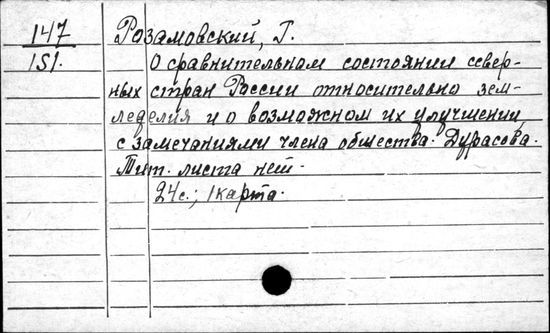 147
151.
Розамовский, Г.
О сравнительном состоянии север-
ных стран России относительно зем-
леделия и о возможном их улучшении
с замечаниями члена общества Дурасова.
Тит. листа нет.
24с.; 1 карта.